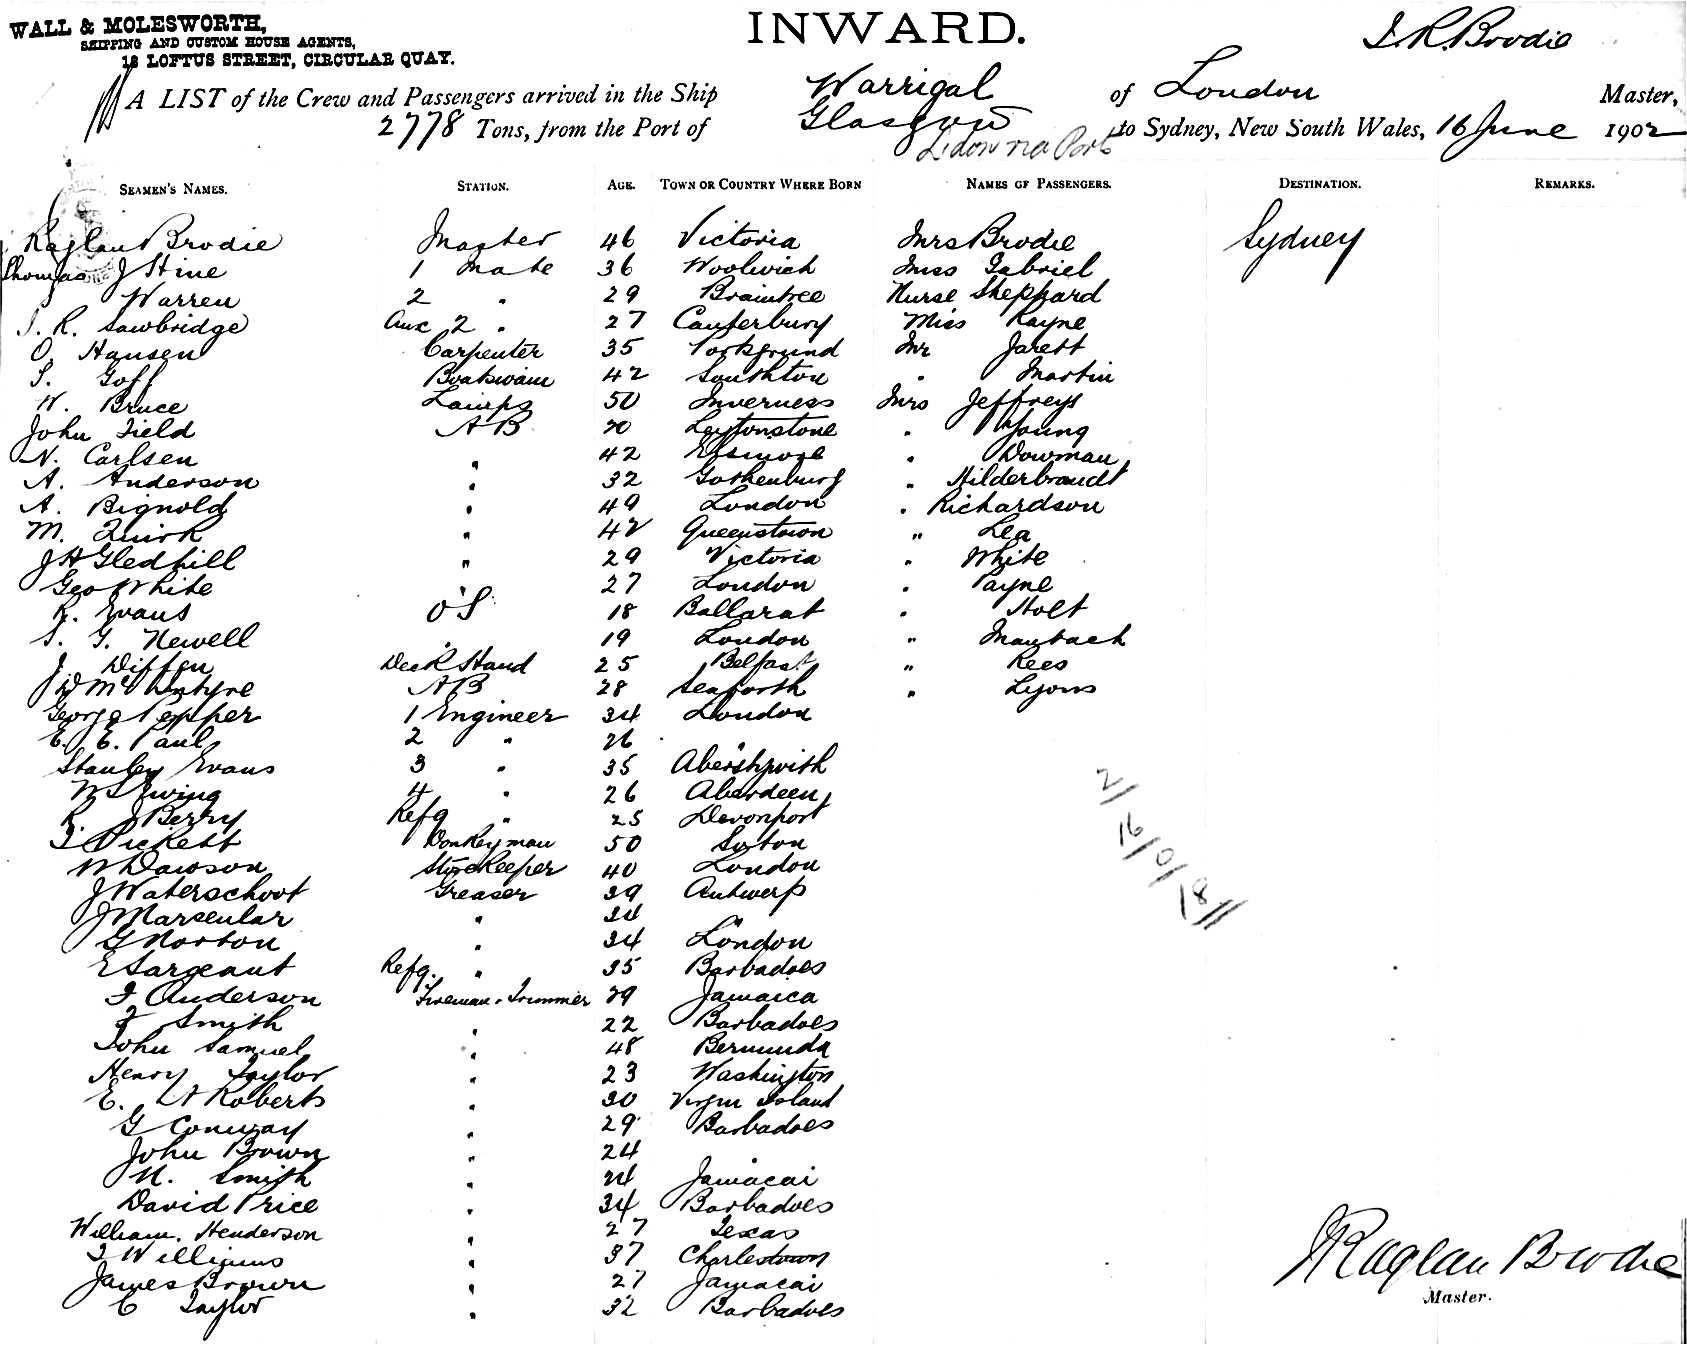 WALL & MOLESWORTH,
SHIPPING AND CUSTOM HOUSE AGENTS,
18 LOFTUS STREET, CIRCULAR QUAY.
INWARD.
J. R. Brodie
A LIST of the Crew and Passengers arrived in the Ship Warrigal of London Master,
2778 Tons, from the Port of Glasgow to Sydney, New South Wales, 16 June 1902
via Ports
SEAMEN'S NAMES. STATION. AGE. TOWN OR COUNTRY WHERE BORN NAMES OF PASSENGERS. DESTINATION. REMARKS.
Raglan Brodie Master 46 Victoria Mrs Brodie Sydney
Thomas J Hine 1 Mate 36 Woolwich Miss Gabriel
Warren 2 " 29 Braintree Nurse Sheppard
J. R. Sawbridge Aux 2 " 27 Canterbury Miss Rayne
O. Hansen Carpenter 35 Porsgrund Mr Jarett
S. Goff Boatswain 42 Southton " Martin
W. Bruce Lamps 50 Inverness Mrs Jeffreys
John Field AB 20 Leytonstone " Young
N. Carlsen " 42 " Dowman
A. Anderson " 32 Gothenburg " Hilderbrandt
A. Bignold " 49 London " Richardson
M. Quirk " 42 Queenstown " Lea
J H Gledhill " 29 Victoria " White
Geo White " 27 London " Payne
R. Evans OS 18 Ballarat " Holt
S. G. Newell " 19 London " Maybach
J. Diffen Deck Hand 25 Belfast " Rees
J D McIntyre AB 28 Seaforth " Lyons
George Pepper 1 Engineer 34 London
E. E. Paul 2 " 26 "
Stanley Evans 3 " 35 Aberstywith
W S Ewing 4 " 26 Aberdeen
R. J Berry Refg " 25 Devonport
T Pickett Donkeyman 50 Sutton
W Dawson Storekeeper 40 London
J Waterschoot Greaser 39 Antwerp
J Marseular " 34 "
G Norton " 34 London
E Sargeant Refg. " 35 Barbadoes
J Anderson Fireman & Trimmer 29 Jamaica
J Smith " 22 Barbadoes
John Samuel " 48 Bermuda
Henry Taylor " 23 Washington
E. A Roberts " 30 Virgin Island
G Conway " 29 Barbadoes
John Brown " 24
N. Smith " 24 Jamacai
David Price " 34 Barbadoes
William. Henderson " 27 Texas
J Williams " 37 Charlestown
James Brown " 27 Jamacai
C Taylor " 32 Barbadoes
2/16/0/18/
J Raglan Brodie
Master.